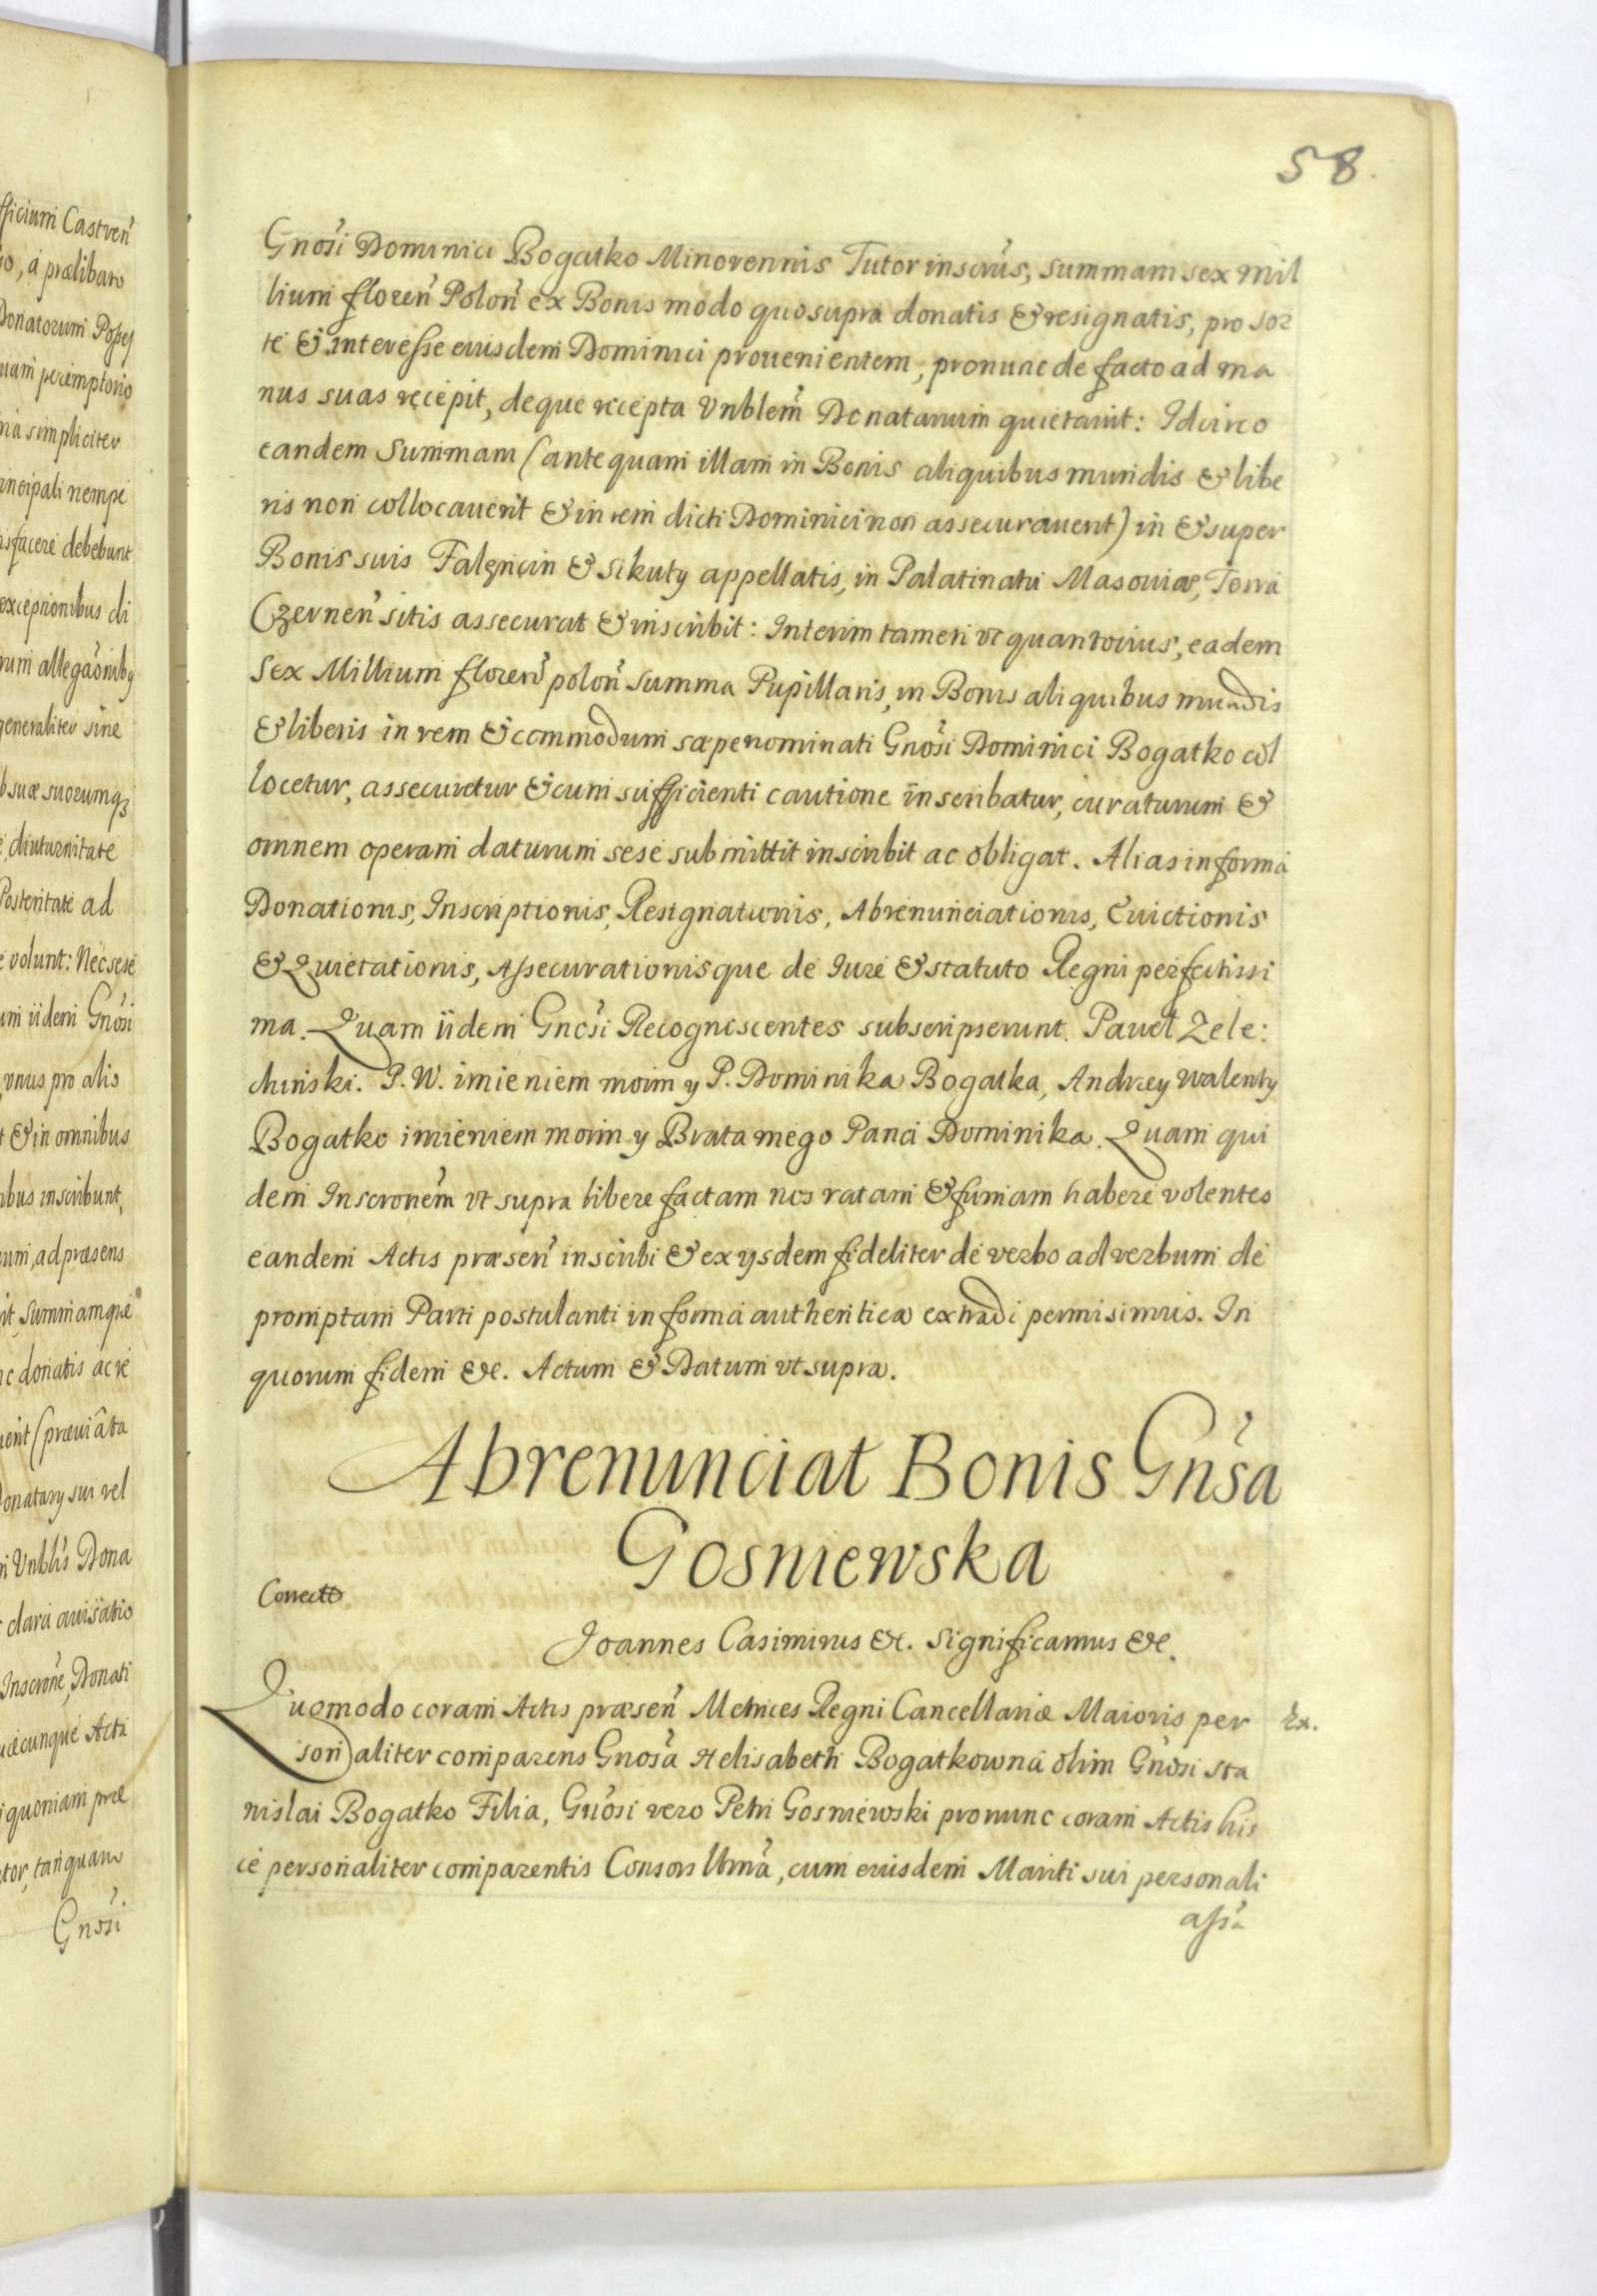 58.
Gnosi Dominici Bogatko Minorennis Tutor inscrus, summam sex mil
lium floren Polon ex Bonis modo quo supra donatis & resignatis, pro sor
te & interesse eiusdem Dominici prouenientem, pro nunc de facto ad ma
nus suas recepit, deque recepta Vnblem Donatarium quietauit: Idcirco
eandem Summam (antequam illam in Bonis aliquibus mundis & libe
ris non collocauerit & in rem dicti Dominici non assecurauerit) in & super
Bonis suis Falęncin & Sikuty appellatis, in Palatinatu Masouiae, Terra
Czernen sitis assecurat & inscribit: Interim tamen vt quantocius, eadem
Sex Millium floren polon summa Pupillaris, in Bonis aliquibus mundis
& liberis in rem & commodum saepenominati Gnosi Dominici Bogatko col
locetur, assecuretur & cum sufficienti cautione inscribatur, curaturum &
omnem operam daturum sese submittit inscribit ac obligat. Alias in forma
Donationis, Inscriptionis, Resignationis, Abrenunciationis, Euictionis
& Quietationis, Assecurationisque de Iure & statuto Regni perfectissi
ma. Quam iidem Gnosi Recognoscentes subscripserunt. Paweł Zele:
chiński. P. W. imieniem moim y P. Dominika Bogatka, Andrzey Walenty
Bogatko imieniem moim y Brata mego Pana Dominika. Quam qui
dem Inscronem vt supra libere factam nos ratam & firmam habere volentes
eandem Actis praesen inscribi & ex ysdem fideliter de verbo ad verbum de
promptam Parti postulanti in forma authentica extradi permisimus. In
quorum fidem &c. Actum & Datum vt supra.
Abrenunciat Bonis Gnsa
Gosniewska
Correcto
Joannes Casimirus &c. Significamus &c.
Quomodo coram Actis praesen Metrices Regni Cancellariae Maioris per Ex.
sonaliter comparens Gnosa Helisabeth Bogatkowna olim Gnosi Sta
nislai Bogatko Filia, Gnosi vero Petri Gosniewski pro nunc coram Actis his
ce personaliter comparentis Consors Ltma, cum eiusdem Mariti sui personali
assa